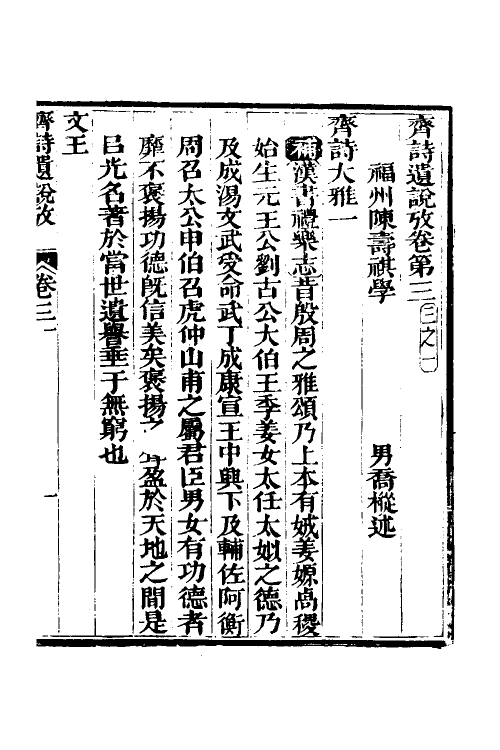 齊詩遺說攷卷第三 三之一
福州陳壽祺學 男喬樅述
齊詩大雅一
補漢書禮樂志昔殷周之雅頌乃上本有娀姜嫄卨稷
始生元王公劉古公大伯王季姜女太任太姒之德乃
及成湯文武受命武丁成康宣王中興下及輔佐阿衡
周召太公申伯召虎仲山甫之屬君臣男女有功德者
靡不褒揚功德旣信美矣褒揚之 盈於天地之間是
㠯光名著於當世遺譽垂于無窮也
文王
齊詩遺說攷 卷三 一